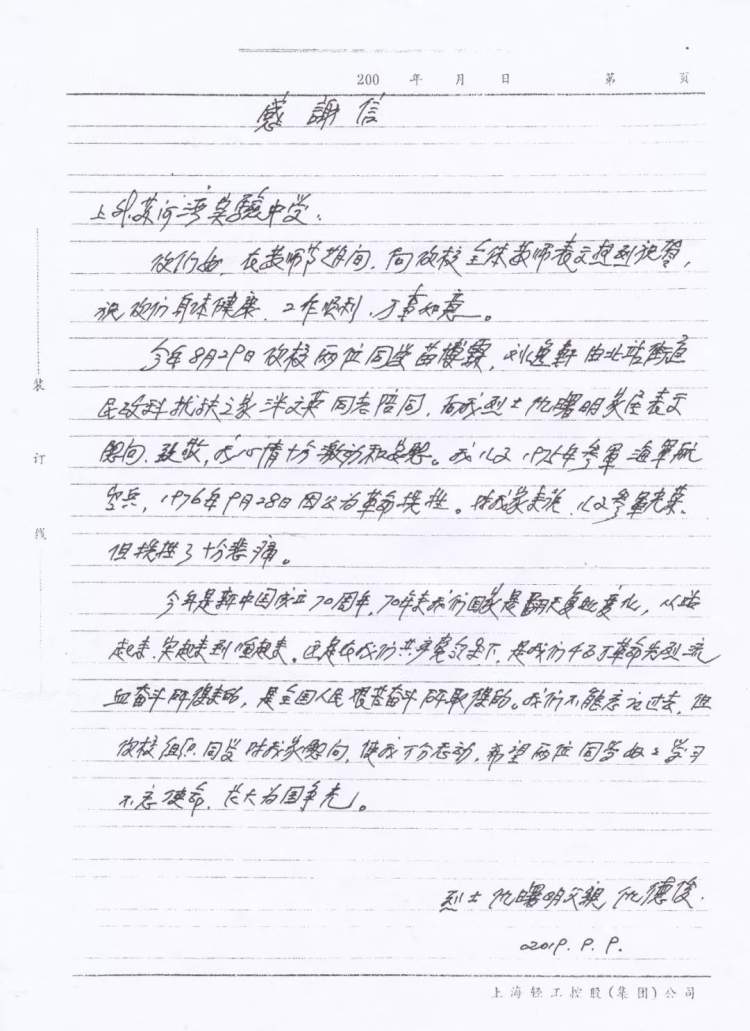 200 年 月 日 第 页
感謝信
上外苏河湾实驗中学：
你们好，在教师节期间，向你校全体教师表示热烈祝贺，
祝你们身体健康、工作顺利，万事如意。
今年8月29日你校两位同学苗 霖，刘逸軒由北站街道
民政科 文英同志陪同，向我烈士仇曙明家属表示
慰问、致敬，我心情十分激动和安慰。我儿子1975年參軍海軍航
空兵，1976年9月28日因公为革命犧牲。对我家来说，儿子參軍光荣、
但犧牲了十分悲痛。
今年是新中国成立70周年，70年来我们国家是翻天复地变化，从站
起来、富起来到强起来。还是在我们共产党领导下，是我们千百万革命先烈流
血奋斗所得来的，是全国人民艰苦奋斗所取得的。我们不能忘记过去，但
你校组织同学对我家慰问，使我十分感动，希望两位同学好好学习
不忘使命、长大为国争光。
烈士仇曙明父親仇德俊.
2019.9.9.
装
订
线
上海轻工控股(集团)公司